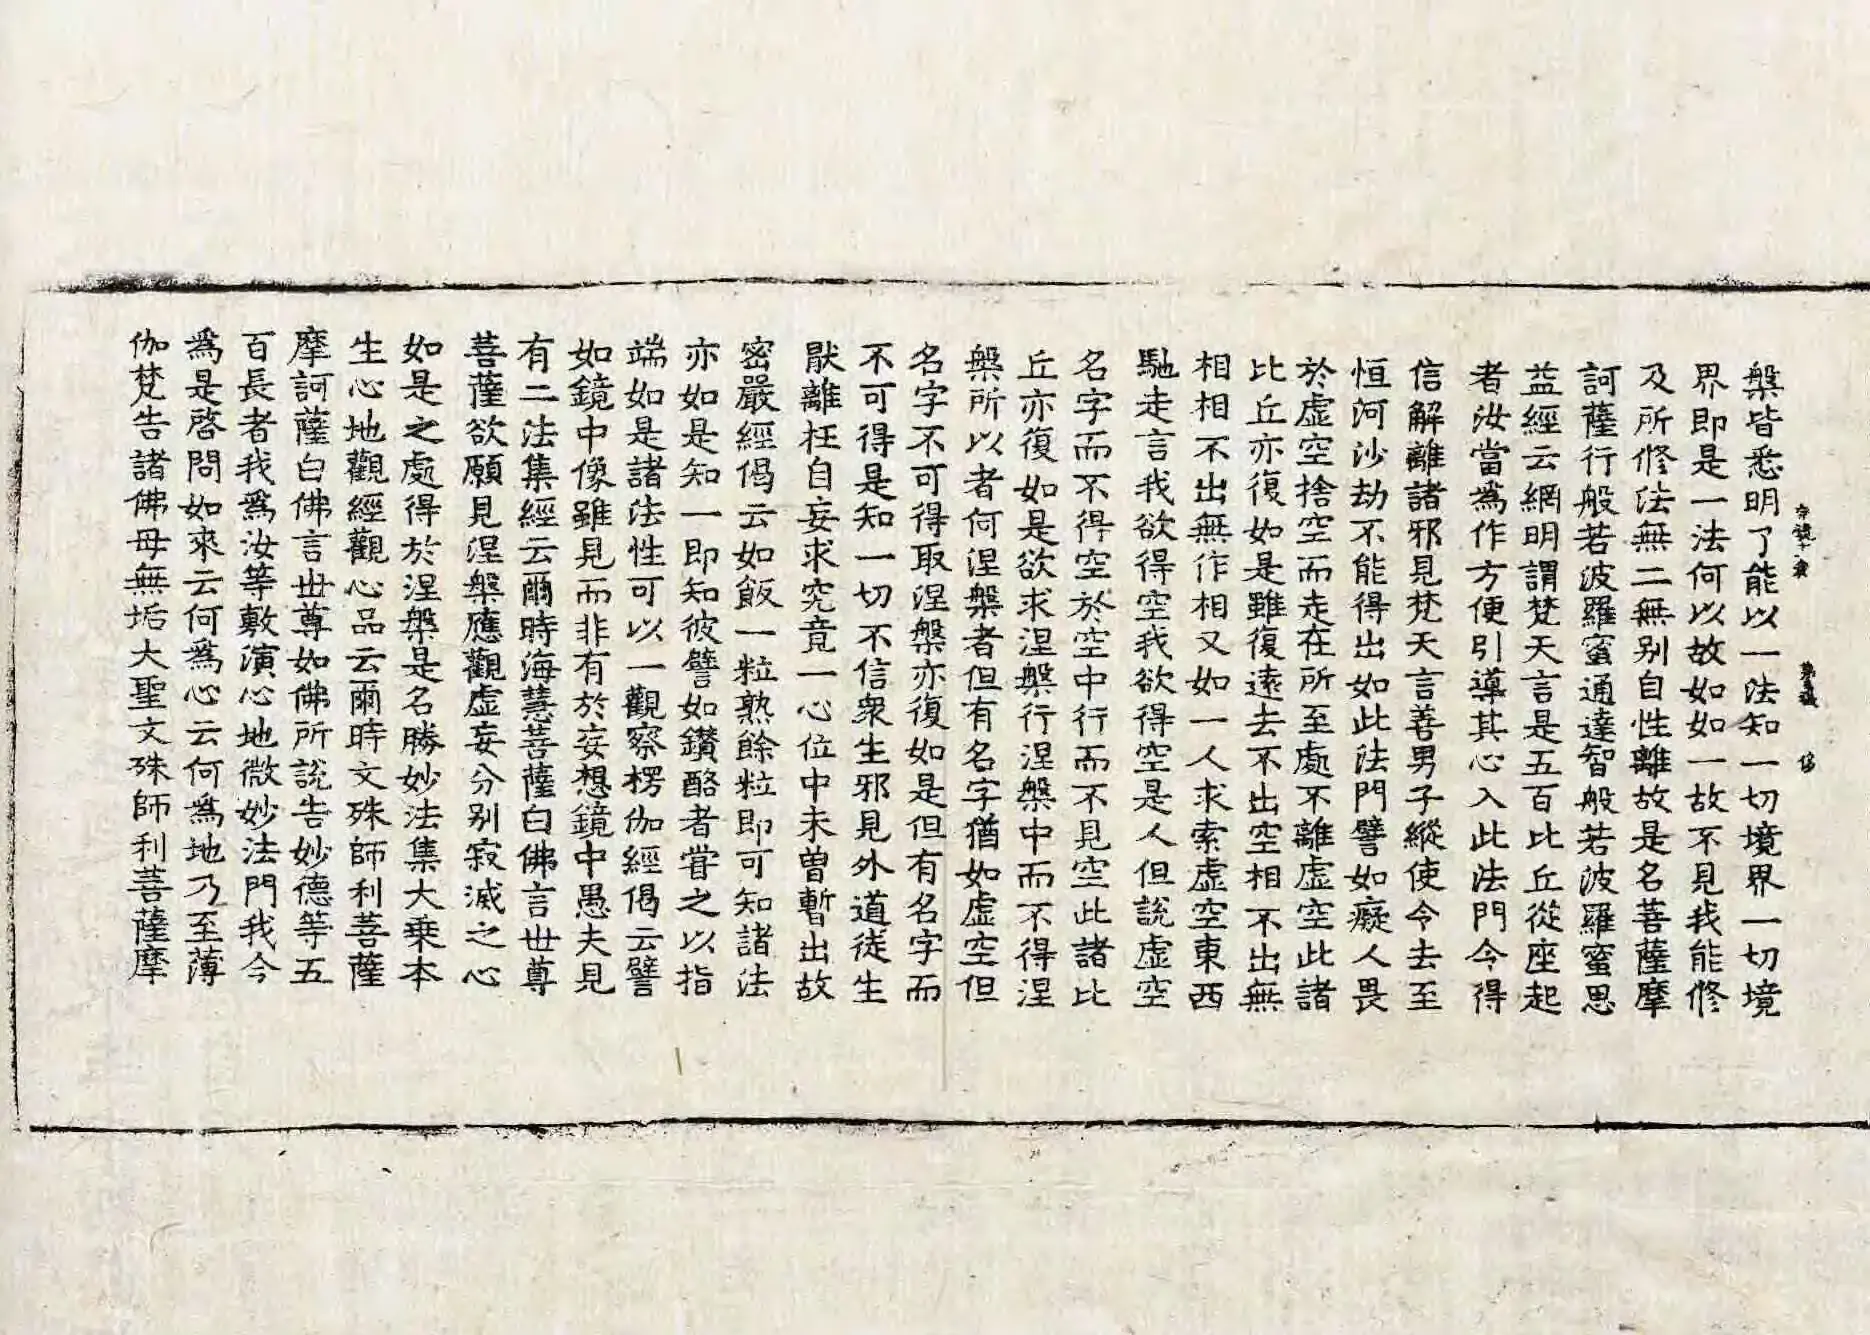 槃皆悉明了能以一法知一切境界一切境
界即是一法何以故如如一故不見我能修
及所修法無二無别自性離故是名菩薩摩
訶薩行般若波羅蜜通達智般若波羅蜜思
益經云網明謂梵天言是五百比丘從座起
者汝當爲作方便引導其心入此法門令得
信解離諸邪見梵天言善男子縱使令去至
恒河沙劫不能得出如此法門譬如癡人畏
於虚空捨空而走在所至處不離虚空此諸
比丘亦復如是雖復遠去不出空相不出無
相相不出無作相又如一人求索虚空東西
馳走言我欲得空我欲得空是人但説虚空
名字而不得空於空中行而不見空此諸比
丘亦復如是欲求涅槃行涅槃中而不得涅
槃所以者何涅槃者但有名字猶如虚空但
名字不可得取涅槃亦復如是但有名字而
不可得是知一切不信衆生邪見外道徒生
猒離枉自妄求究竟一心位中未曽暫出故
密嚴經偈云如飯一粒熟餘粒即可知諸法
亦如是知一即知彼譬如鑚酪者甞之以指
端如是諸法性可以一觀察楞伽經偈云譬
如鏡中像雖見而非有於妄想鏡中愚夫見
有二法集經云爾時海慧菩薩白佛言世尊
菩薩欲願見涅槃應觀虚妄分别寂滅之心
如是之處得於涅槃是名勝妙法集大乗本
生心地觀經觀心品云爾時文殊師利菩薩
摩訶薩白佛言世尊如佛所説告妙德等五
百長者我爲汝等敷演心地微妙法門我今
爲是啓問如來云何爲心云何爲地乃至薄
伽梵告諸佛母無垢大聖文殊師利菩薩摩